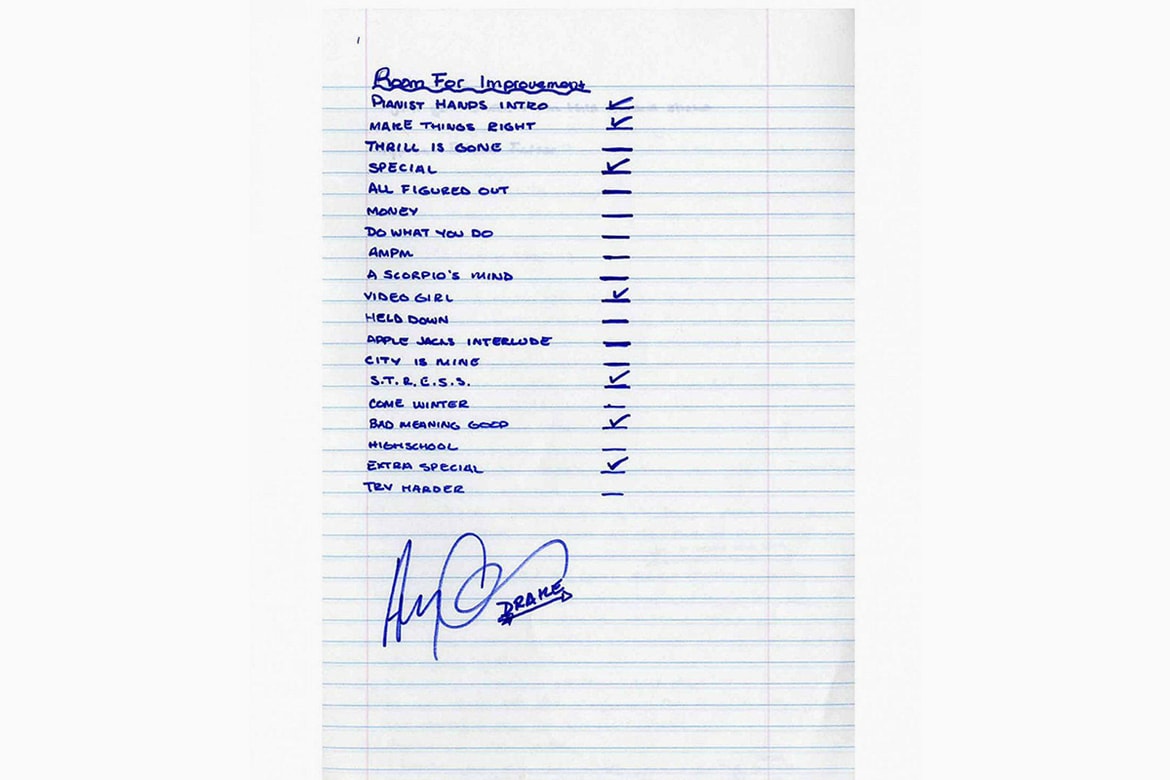 Room For Improvement
PIANIST HANDS INTRO ✓
MAKE THINGS RIGHT ✓
THRILL IS GONE —
SPECIAL ✓
ALL FIGURED OUT —
MONEY —
DO WHAT YOU DO —
AMPM —
A SCORPIO'S MIND —
VIDEO GIRL ✓
HELD DOWN —
APPLE JACKS INTERLUDE —
CITY IS MINE —
S.T.R.E.S.S. ✓
COME WINTER —
BAD MEANING GOOD ✓
HIGHSCHOOL —
EXTRA SPECIAL ✓
TRY HARDER —
DRAKE